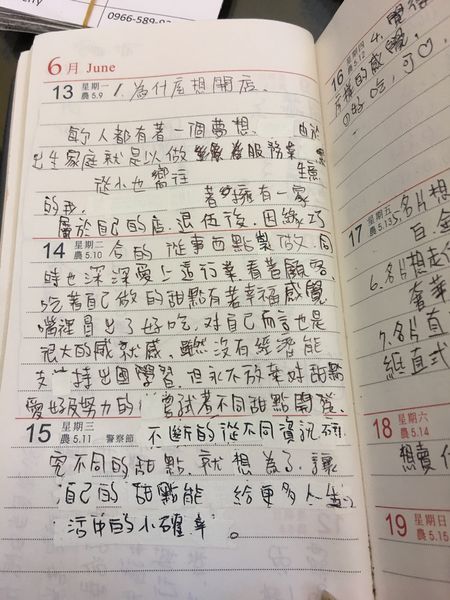 0966-589-0
6月 June
13 星期一 農5.9 1.為什麼想開店.
每個人都有著一個夢想. 由於
出生家庭就是以做 服務業
生意
的我. 從小也嚮往 著擁有一家
屬於自己的店.退伍後.因緣巧
14 星期二 農5.10 合的 從事西點製做.同
時也深深愛上這行業看著顧客
吃著自己做的甜點有著幸福感覺
嘴裡冒出了好吃.對自己而言也是
很大的感就感.雖然沒有經濟能
支持出國學習.但永不放棄对甜點
愛好及努力的 嘗試者不同甜點開發.
15 星期三 農5.11 警察節 不斷的從不同資訊研
究不同的甜點.就想為了.讓
自己的 甜點能 給更多人生
活中的小確幸。
16 星期四 農5.12 4.覺得
的感覺.
①好吃.可♡.
17 星期五 農5.13 5.名片想
白.金
6.名片想走
奢華
7.名片直
紙直式
18 星期六 農5.14
想賣什
19 星期日 農5.15